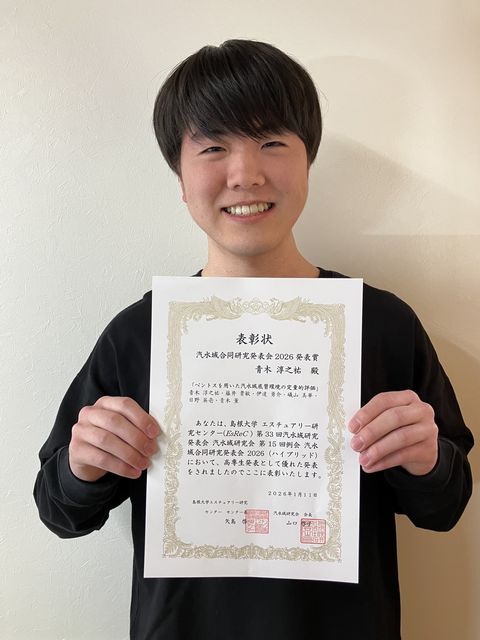 表彰状
汽水域合同研究発表会2026発表賞
青木 淳之祐 殿
「ベントスを用いた汽水域底質環境の定量的評価」
青木 淳之祐・藤井 貴敏・伊達 勇介・礒山 美華・
日野 英壱・青木 薫
あなたは、島根大学 エスチュアリー研
究センター(EsReC) 第33回汽水域研究
発表会 汽水域研究会 第15回例会 汽水
域合同研究発表会 2026 (ハイブリッド)
において、高専生発表として優れた発表
をされましたのでここに表彰いたします。
2026年1月11日
島根大学エスチュアリー研究
センター センター長
矢島 啓
汽水域研究会 会長
山口 啓子